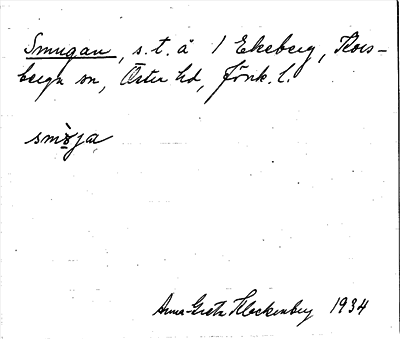 Smugan, s. t. å 1 Ekeberg, Kors-
berga sn, Östra hd, Jönk. l.
smөja
Anna-Greta Klockenberg 1934